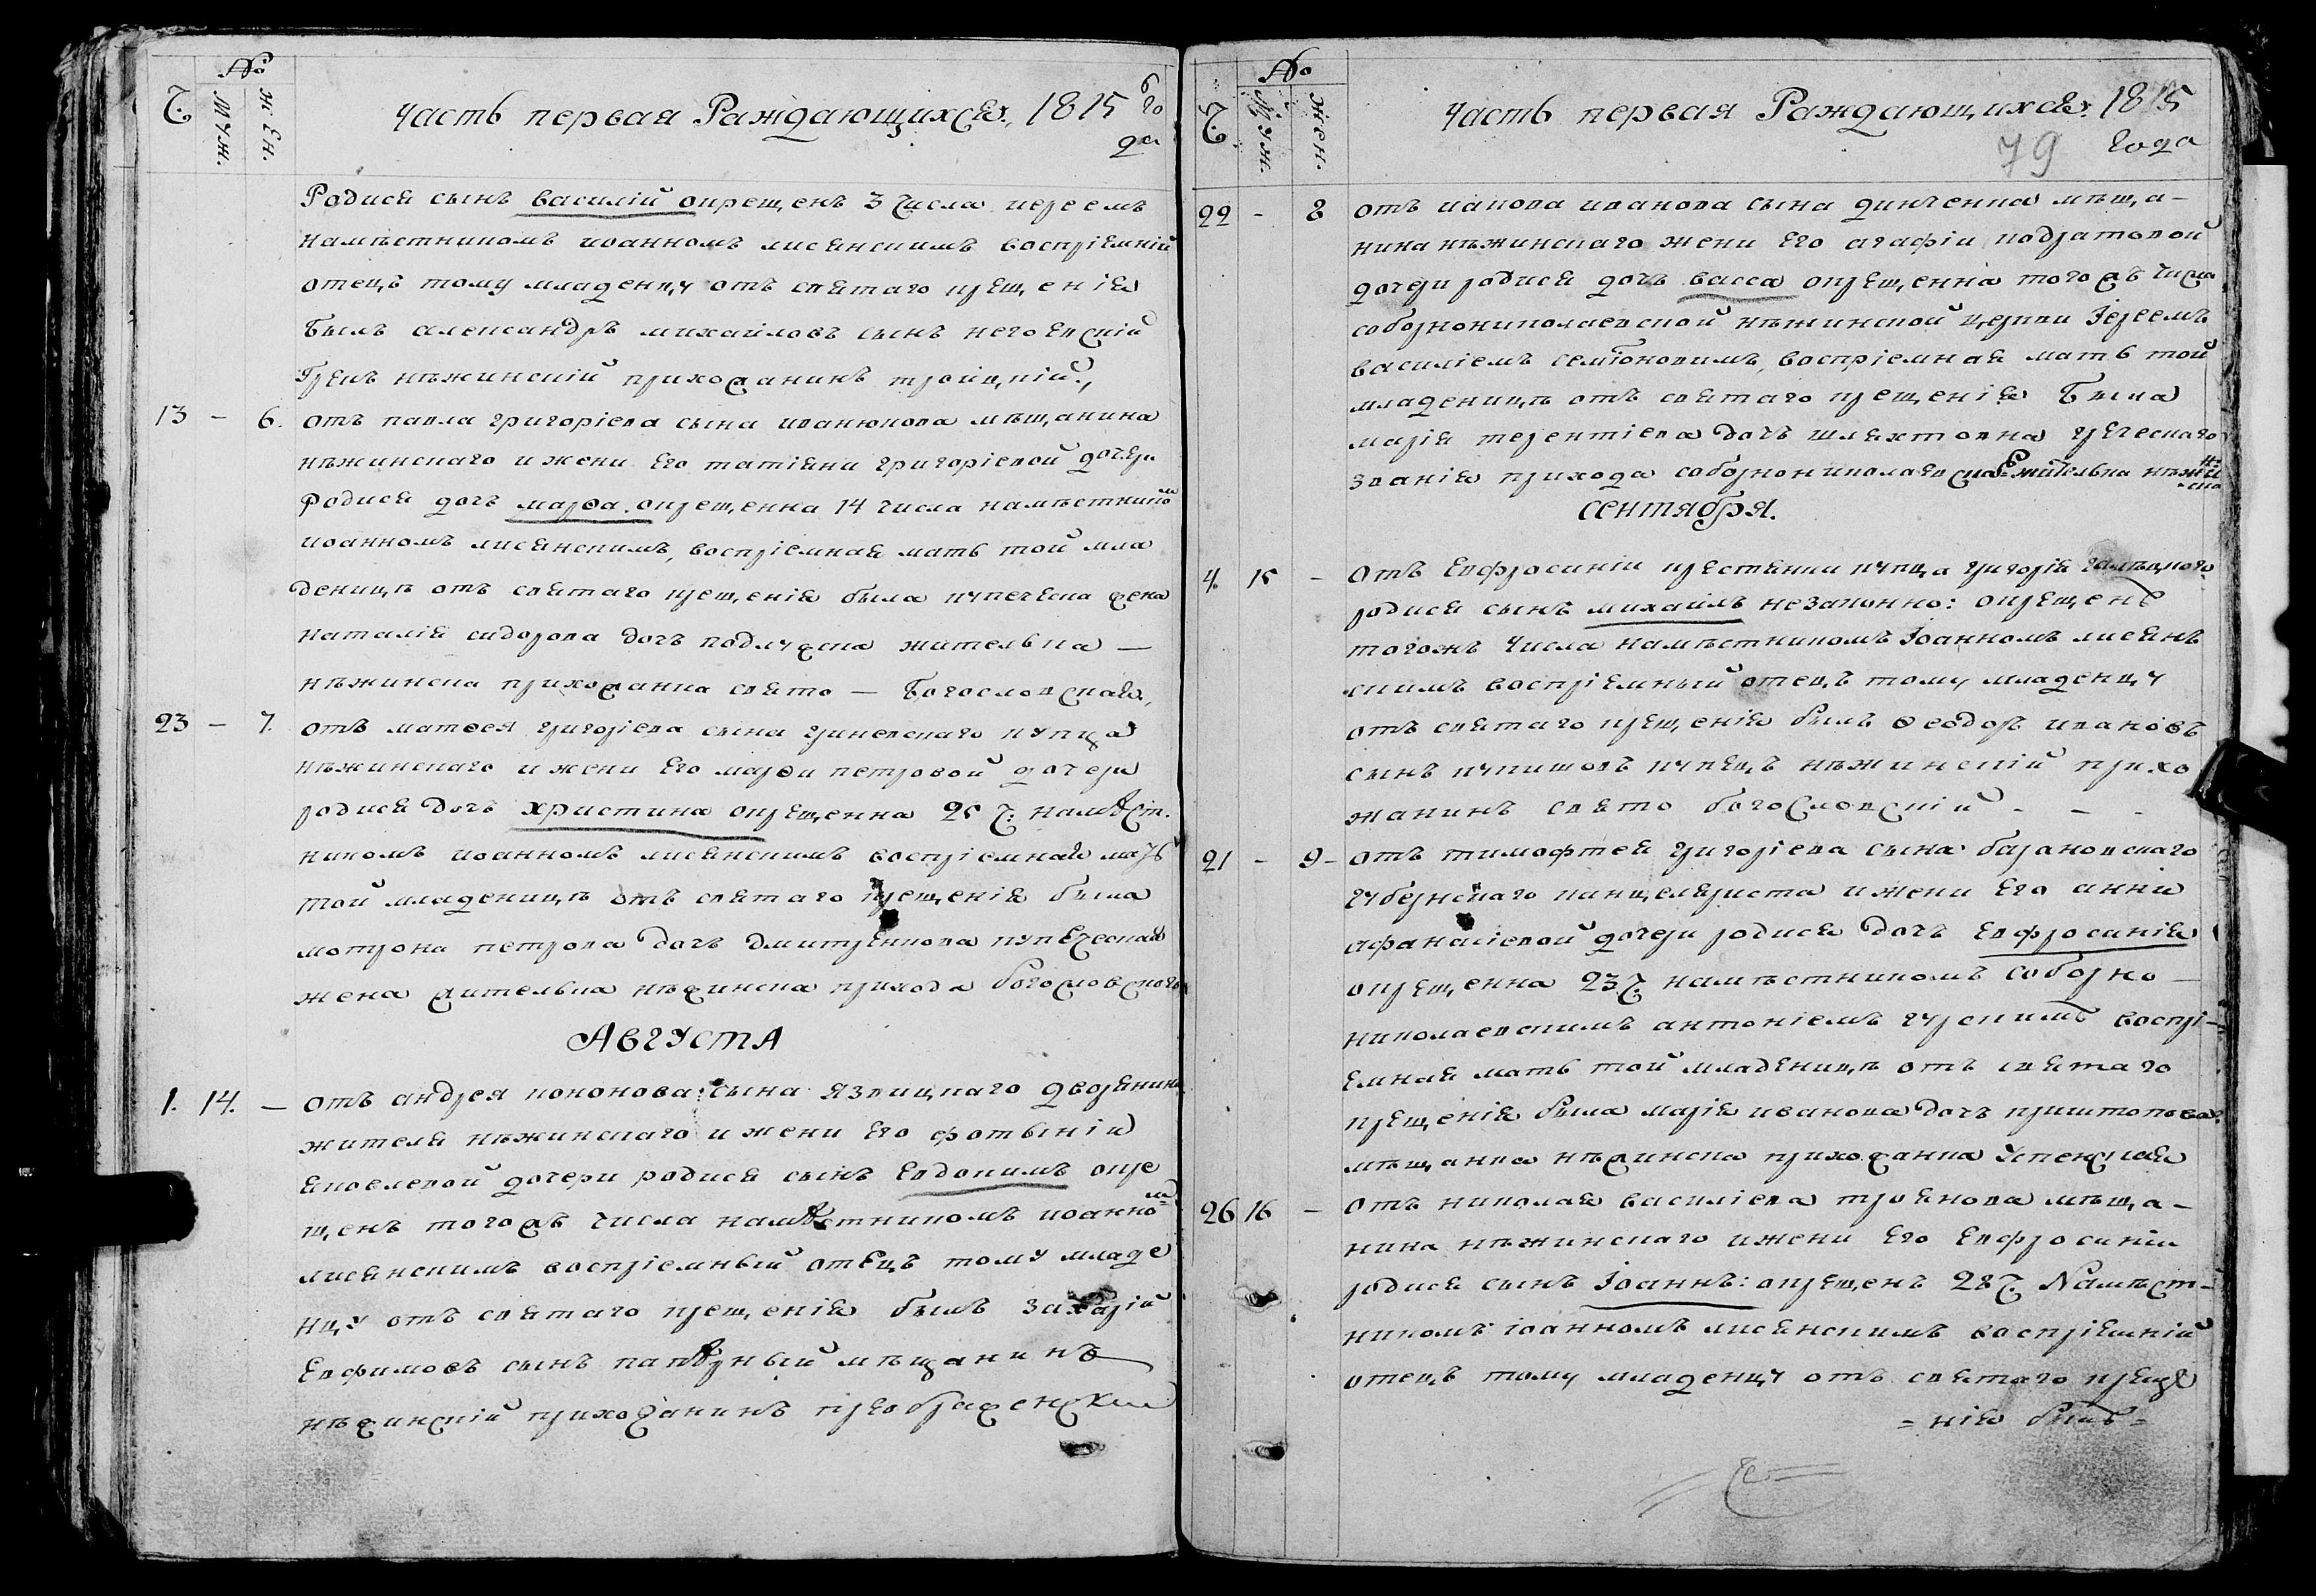 Ч. № Муж. Жен.
Часть первая Раждающихся. 1815 го
да
Родися сынъ василій окрещенъ 3 числа иереемъ
намѣстникомъ иоанномъ лисянскимъ воспріемній
отецъ тому младенцу отъ святаго крещенія
былъ александръ михайловъ сынъ негоевскій
Грекъ нѣжинскій прихожанинъ тройцкій.,
13 – 6. отъ павла григоріева сына иванюкова мѣщанина
нѣжинскаго и жени его татіяни григоріевой дочери
родися дочь марѳа окрещенна 14 числа намѣстником
иоанномъ лисянскимъ, воспріемная мать той мла
деницѣ отъ святаго крещенія была купеческа жена
наталія сидорова дочь подлужска жителька —
нѣжинска прихожанка свято — Богословская,
23 – 7. отъ матѳея григоріева сына гриневскаго купца
нѣжинскаго и жени его марѳи петровой дочери
родися дочь христина окрещенна 25 ч: намѣст.
никомъ иоанномъ лисянскимъ воспріемная мать
той младеницѣ отъ святаго крещенія была
мотрона петрова дочь дмитренкова купеческая
жена жителька нѣжинска прихода богословского
Августа
1. 14. – отъ андрея кононова сына язвицкаго дворянина
жителя нѣжинскаго и жени его фотыніи
яковлевой дочери родися сынъ Евдокимъ окре
щенъ тогожъ числа намѣстникомъ иоанном
лисянскимъ воспріемный отецъ тому младе
нцу отъ святаго крещенія былъ захарій
Евфимовъ сынъ мѣщанинъ
нѣжинскій прихожанинъ преображенскій
Ч. № Муж. Жен.
Часть первая Раждающихся. 1815
79 года
22 – 8 отъ иакова иванова сына динченка мѣща–
нина нѣжинскаго жени его агафіи
дочери родися дочь васса окрещенна тогожъ числа
соборнониколаевской нѣжинской церкви Іереемъ
василіемъ семіоновимъ, воспріемная мать той
младеницѣ отъ святаго крещенія была
марія терентіева дочь шляхтовна греческаго
званія прихода соборнониколаевска жителька нѣжинска
сентября.
4. 15 – Отъ Евфросиніи крестянки купца григорія
родися сынъ михаилъ незаконно: окрещенъ
тогожъ числа намѣстникомъ Іоанномъ лисян
скимъ воспріемный отецъ тому младенцу
отъ святаго крещенія былъ ѳеодоръ ивановъ
сынъ купецъ нѣжинскій прихо
жанинъ свято богословскій – – –
21 – 9 – отъ тимофтея григоріева сына барановскаго
губернскаго канцеляриста и жени его анни
афанасіевой дочери родися дочь Евфросинія
окрещенна 23 ч. намѣстникомъ соборно –
николаевскимъ антоніемъ воспрі–
емная мать той младеницѣ отъ святаго
крещенія была марія иванова дочь криштопова.
мѣщанка нѣжинска прихожанка Успенская
26 16 – отъ николая василіева троянова мѣща–
нина нѣжинскаго и жени его Евфросиніи
родися сынъ Іоаннъ: окрещенъ 28 ч. Намѣст–
никомъ іоанномъ лисянскимъ воспріемній
отецъ тому младенцу отъ святаго креще
= нія былъ =